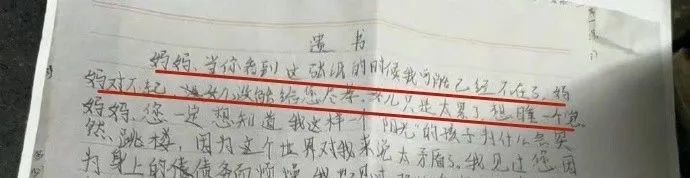 遗书
妈妈,当你看到这 的时候我可能已经不在了,妈
妈对不起, 女儿没能给您尽孝,女儿只是太累了想睡一个觉
妈妈,您一定想知道我这样一个"阳光"的孩子为什么会突
然跳楼,因为这个世界对我来说太矛盾了。我见过您因
为身上的 债务而烦恼